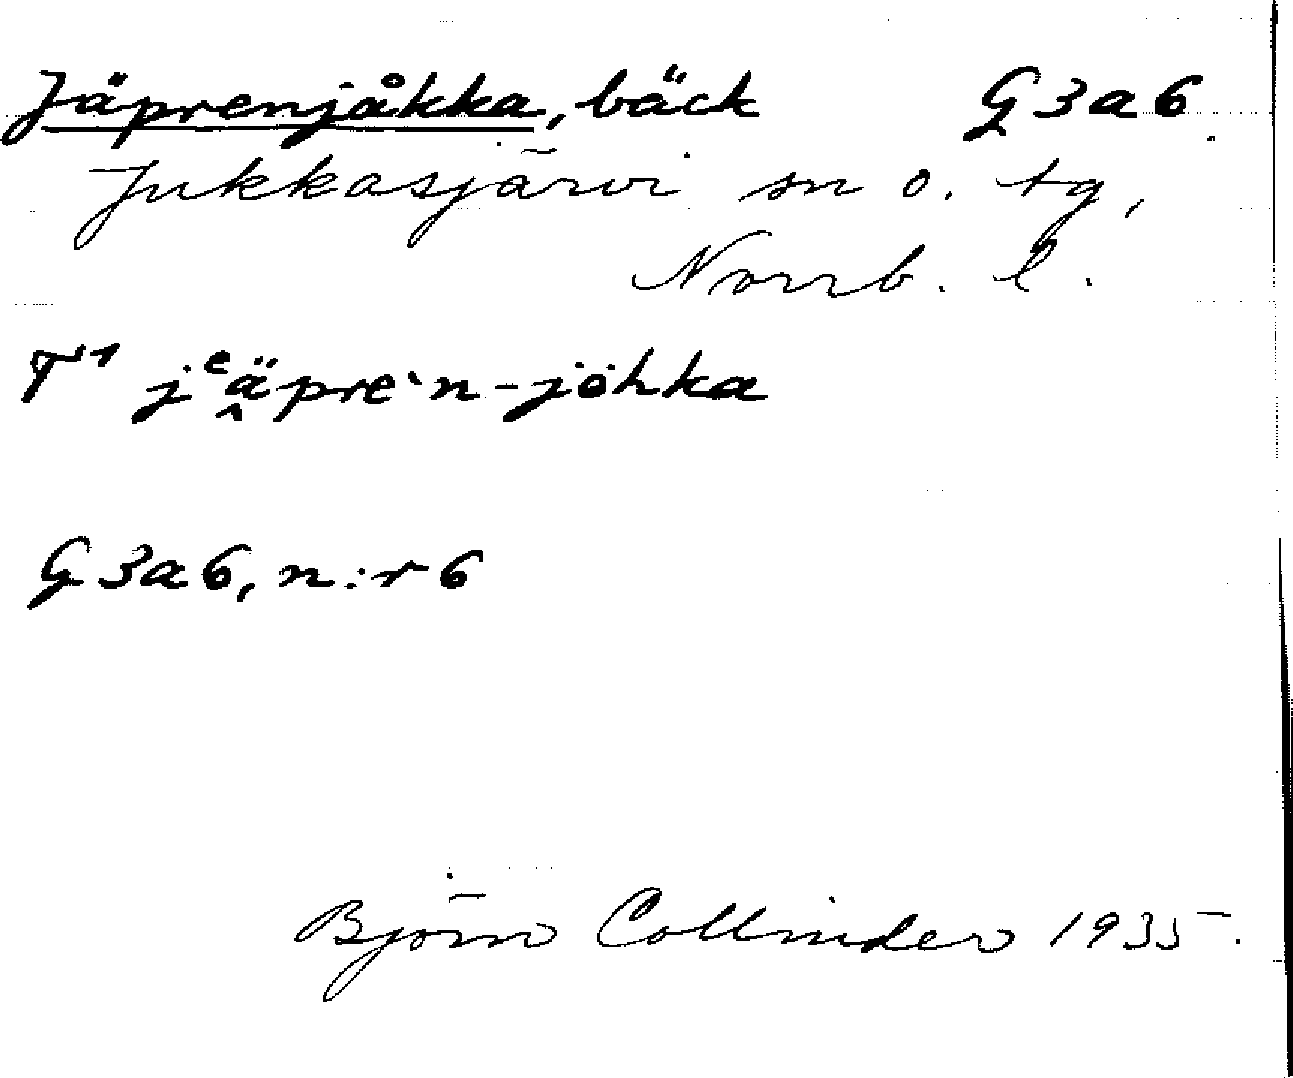 Jäprenjåkka, bäck G3a6
Jukkasjärvi sn o. tg,
Norrb. l.
T1 jᵉä̭preˋn-jöhka
G3a6, n:r 6
Björn Collinder 1935.